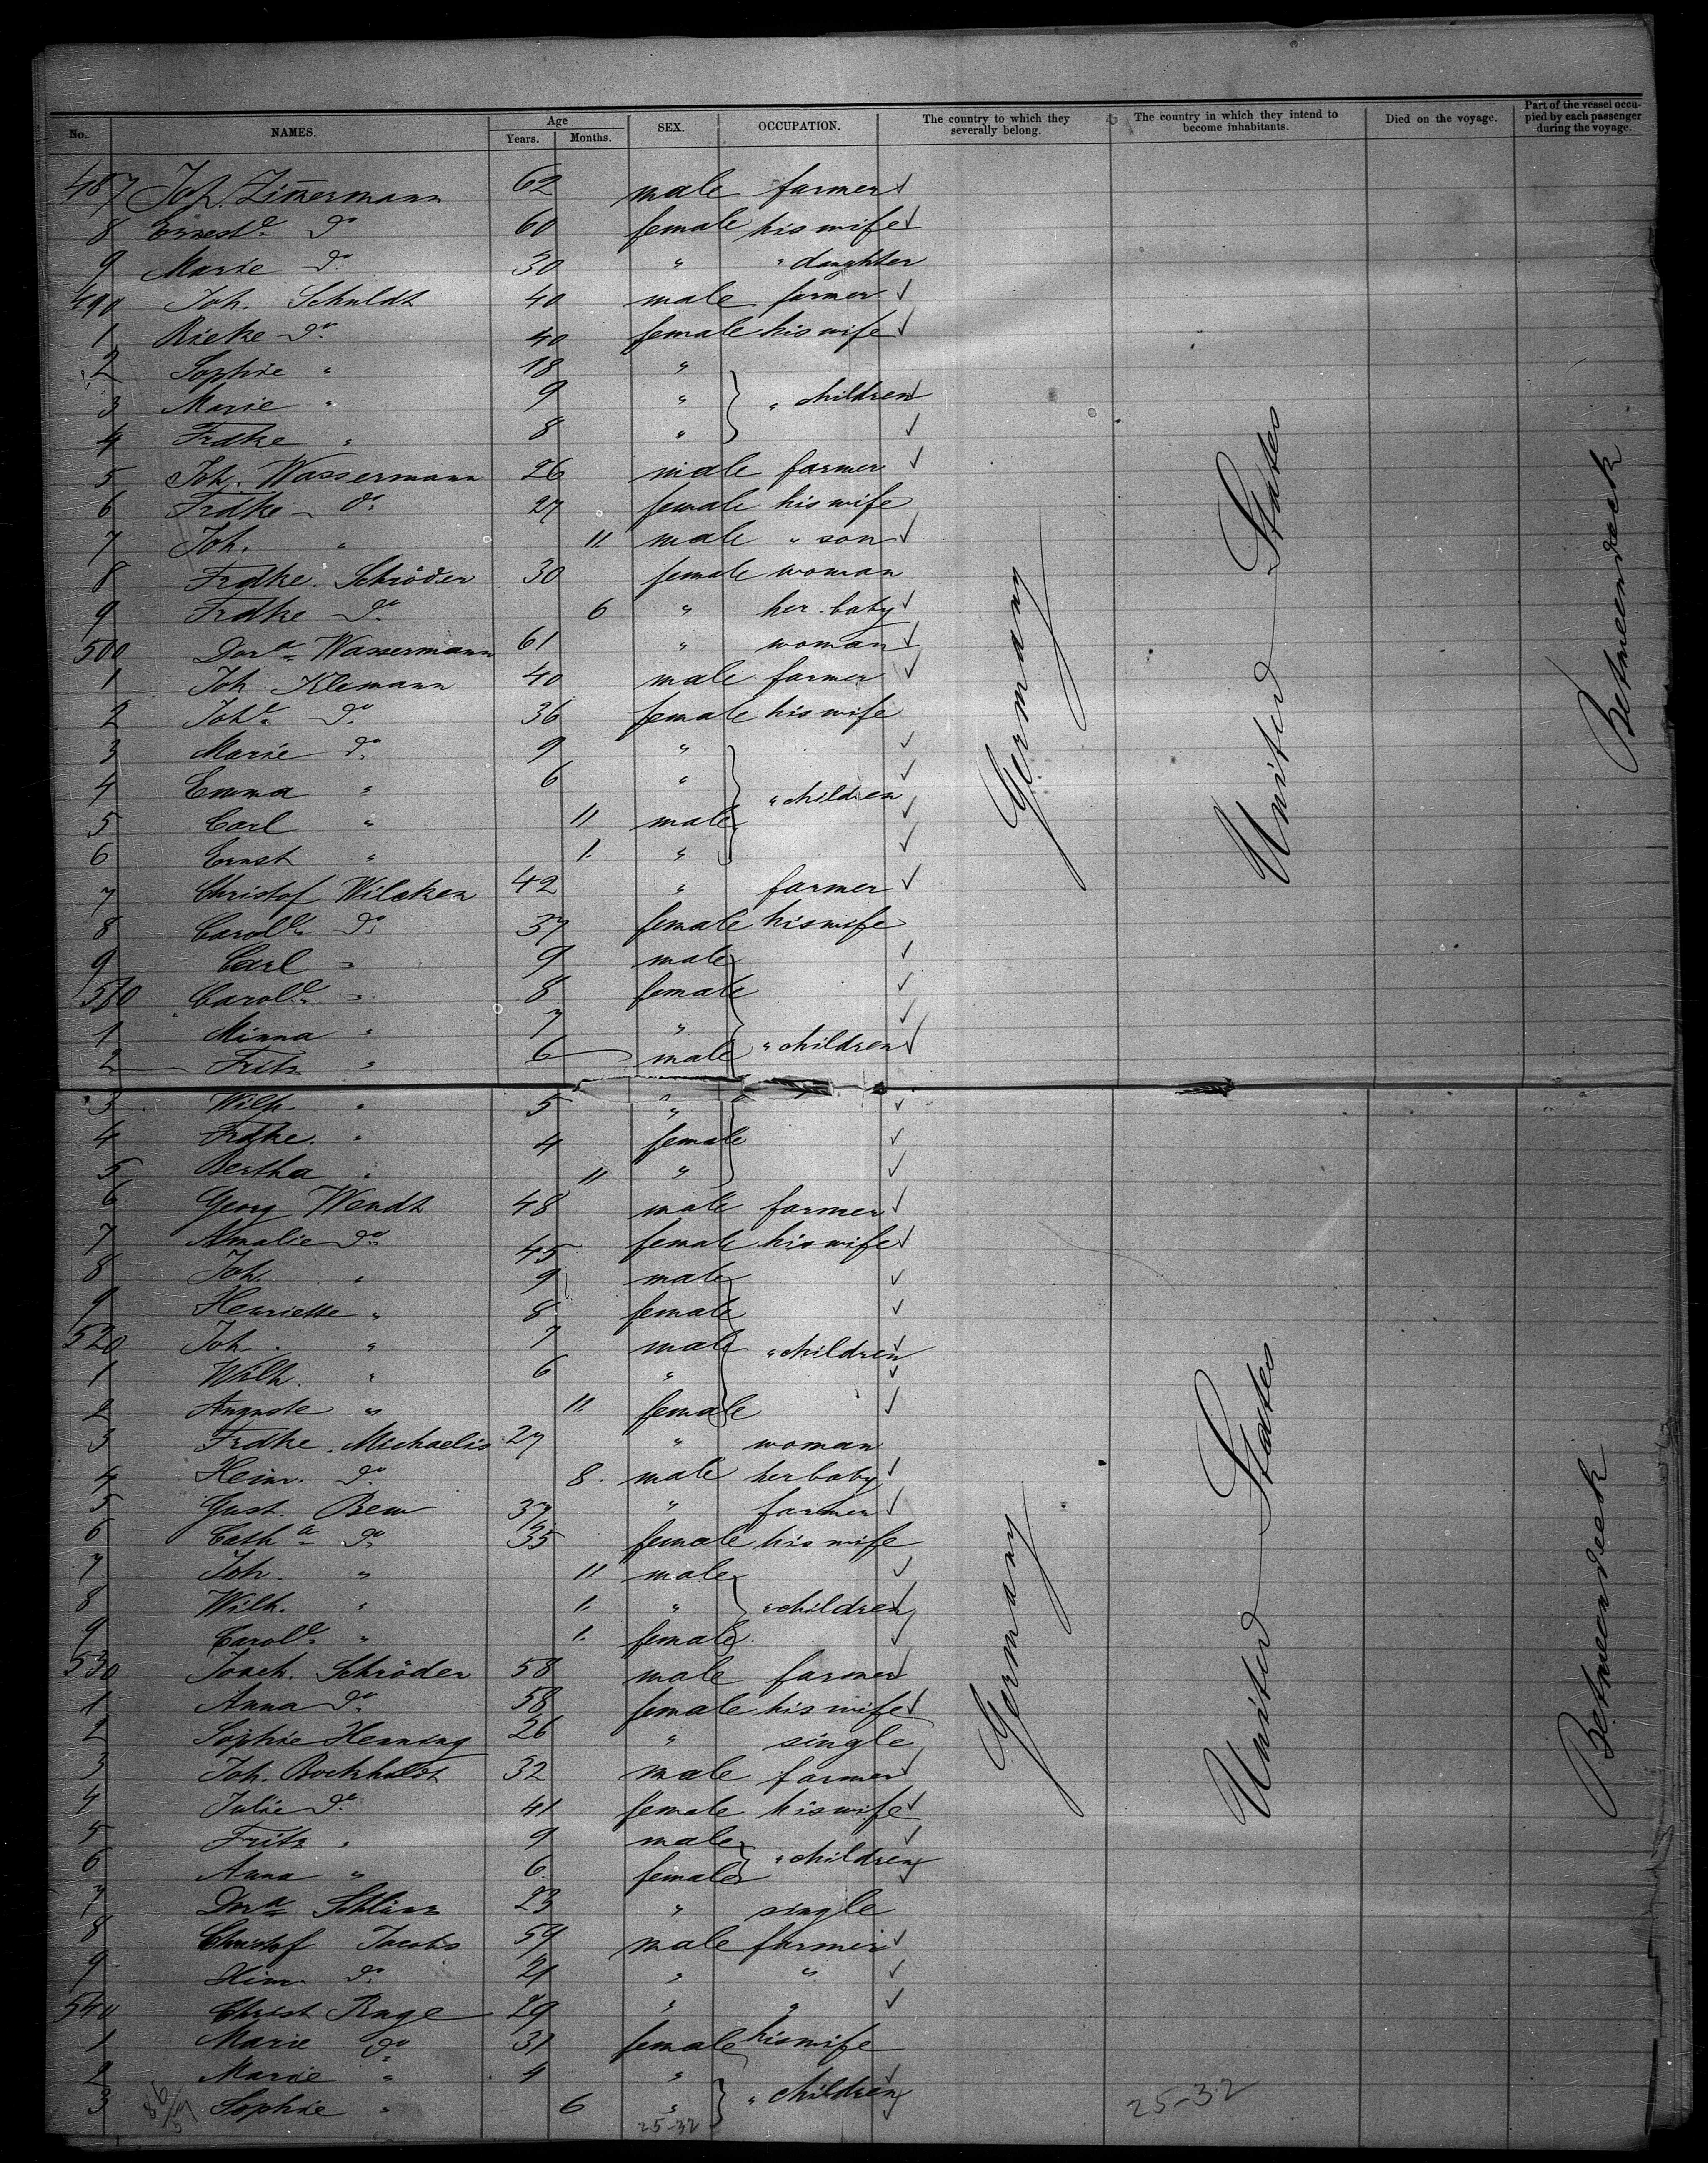 No. NAMES. Age Years. Months. SEX. OCCUPATION. The country to which they severally belong. The country in which they intend to become inhabitants. Died on the voyage. Part of the vessel occupied by each passenger during the voyage.
487 Joh. Zim̄ermann 62 male farmer ✓
8 Ernest^e do 60 female his wife ✓
9 Marie do 30 " " daughter
490 Joh. Schuldt 40 male farmer ✓
1 Rieke do 40 female his wife ✓
2 Sophie " 18 "
3 Marie " 9 " " children ✓
4 Frdke " 8 " ✓
5 Joh. Wassermann 26 male farmer ✓
6 Frdke do 27 female his wife
7 Joh. " 11 male " son ✓
8 Frdke. Schröder 30 female woman
9 Frdke do 6 " her baby ✓
500 Dor^a Wassermann 61 " woman ✓
1 Joh. Klemann 40 male farmer ✓
2 Joh^e do 36 female his wife
3 Marie do 9 " ✓
4 Emma " 6 " " children ✓
5 Carl " 11 male ✓
6 Ernst " 1. " ✓
7 Christof Wilcken 42 " farmer ✓
8 Carol^e do 37 female his wife
9 Carl " 9 male ✓
510 Carol^e " 8 female ✓
1 Minna " 7 " ✓
2 Fritz " 6 male " children ✓
3 Wilh. " 5 " ✓
4 Frdke. " 4 female ✓
5 Bertha " 11 " ✓
6 Georg Wendt 48 male farmer ✓
7 Amalie do 45 female his wife ✓
8 Joh. " 9 male ✓
9 Henriette " 8 female ✓
520 Joh. " 7 male " children ✓
1 Wilh. " 6 " ✓
2 Auguste " 11 female ✓
3 Frdke. Michaelis 27 " woman
4 Heinr. do 8. male her baby ✓
5 Gust. Bew 37 " farmer ✓
6 Cath^a do 35 female his wife
7 Joh. " 11 male ✓
8 Wilh. " 1. " " children ✓
9 Carol^e " 1. female ✓
530 Joach. Schröder 58 male farmer ✓
1 Anna do 58 female his wife ✓
2 Sophie Henning 26 " single
3 Joh. Buchholdt 32 male farmer ✓
4 Julie do 41 female his wife ✓
5 Fritz " 9 male ✓
6 Anna " 6 female " children ✓
7 Dor^a 23 " single
8 Christof Jacobs 59 male farmer ✓
9 Hinr. do 21 " " ✓
540 Christ Ruge 29 " " ✓
1 Marie do 31 female his wife
2 Marie " 4 " ✓
3 Sophie " 6 " " children ✓
Germany
United States
Betweendeck
Germany
United States
Betweendeck
86/57
25-32
25-32